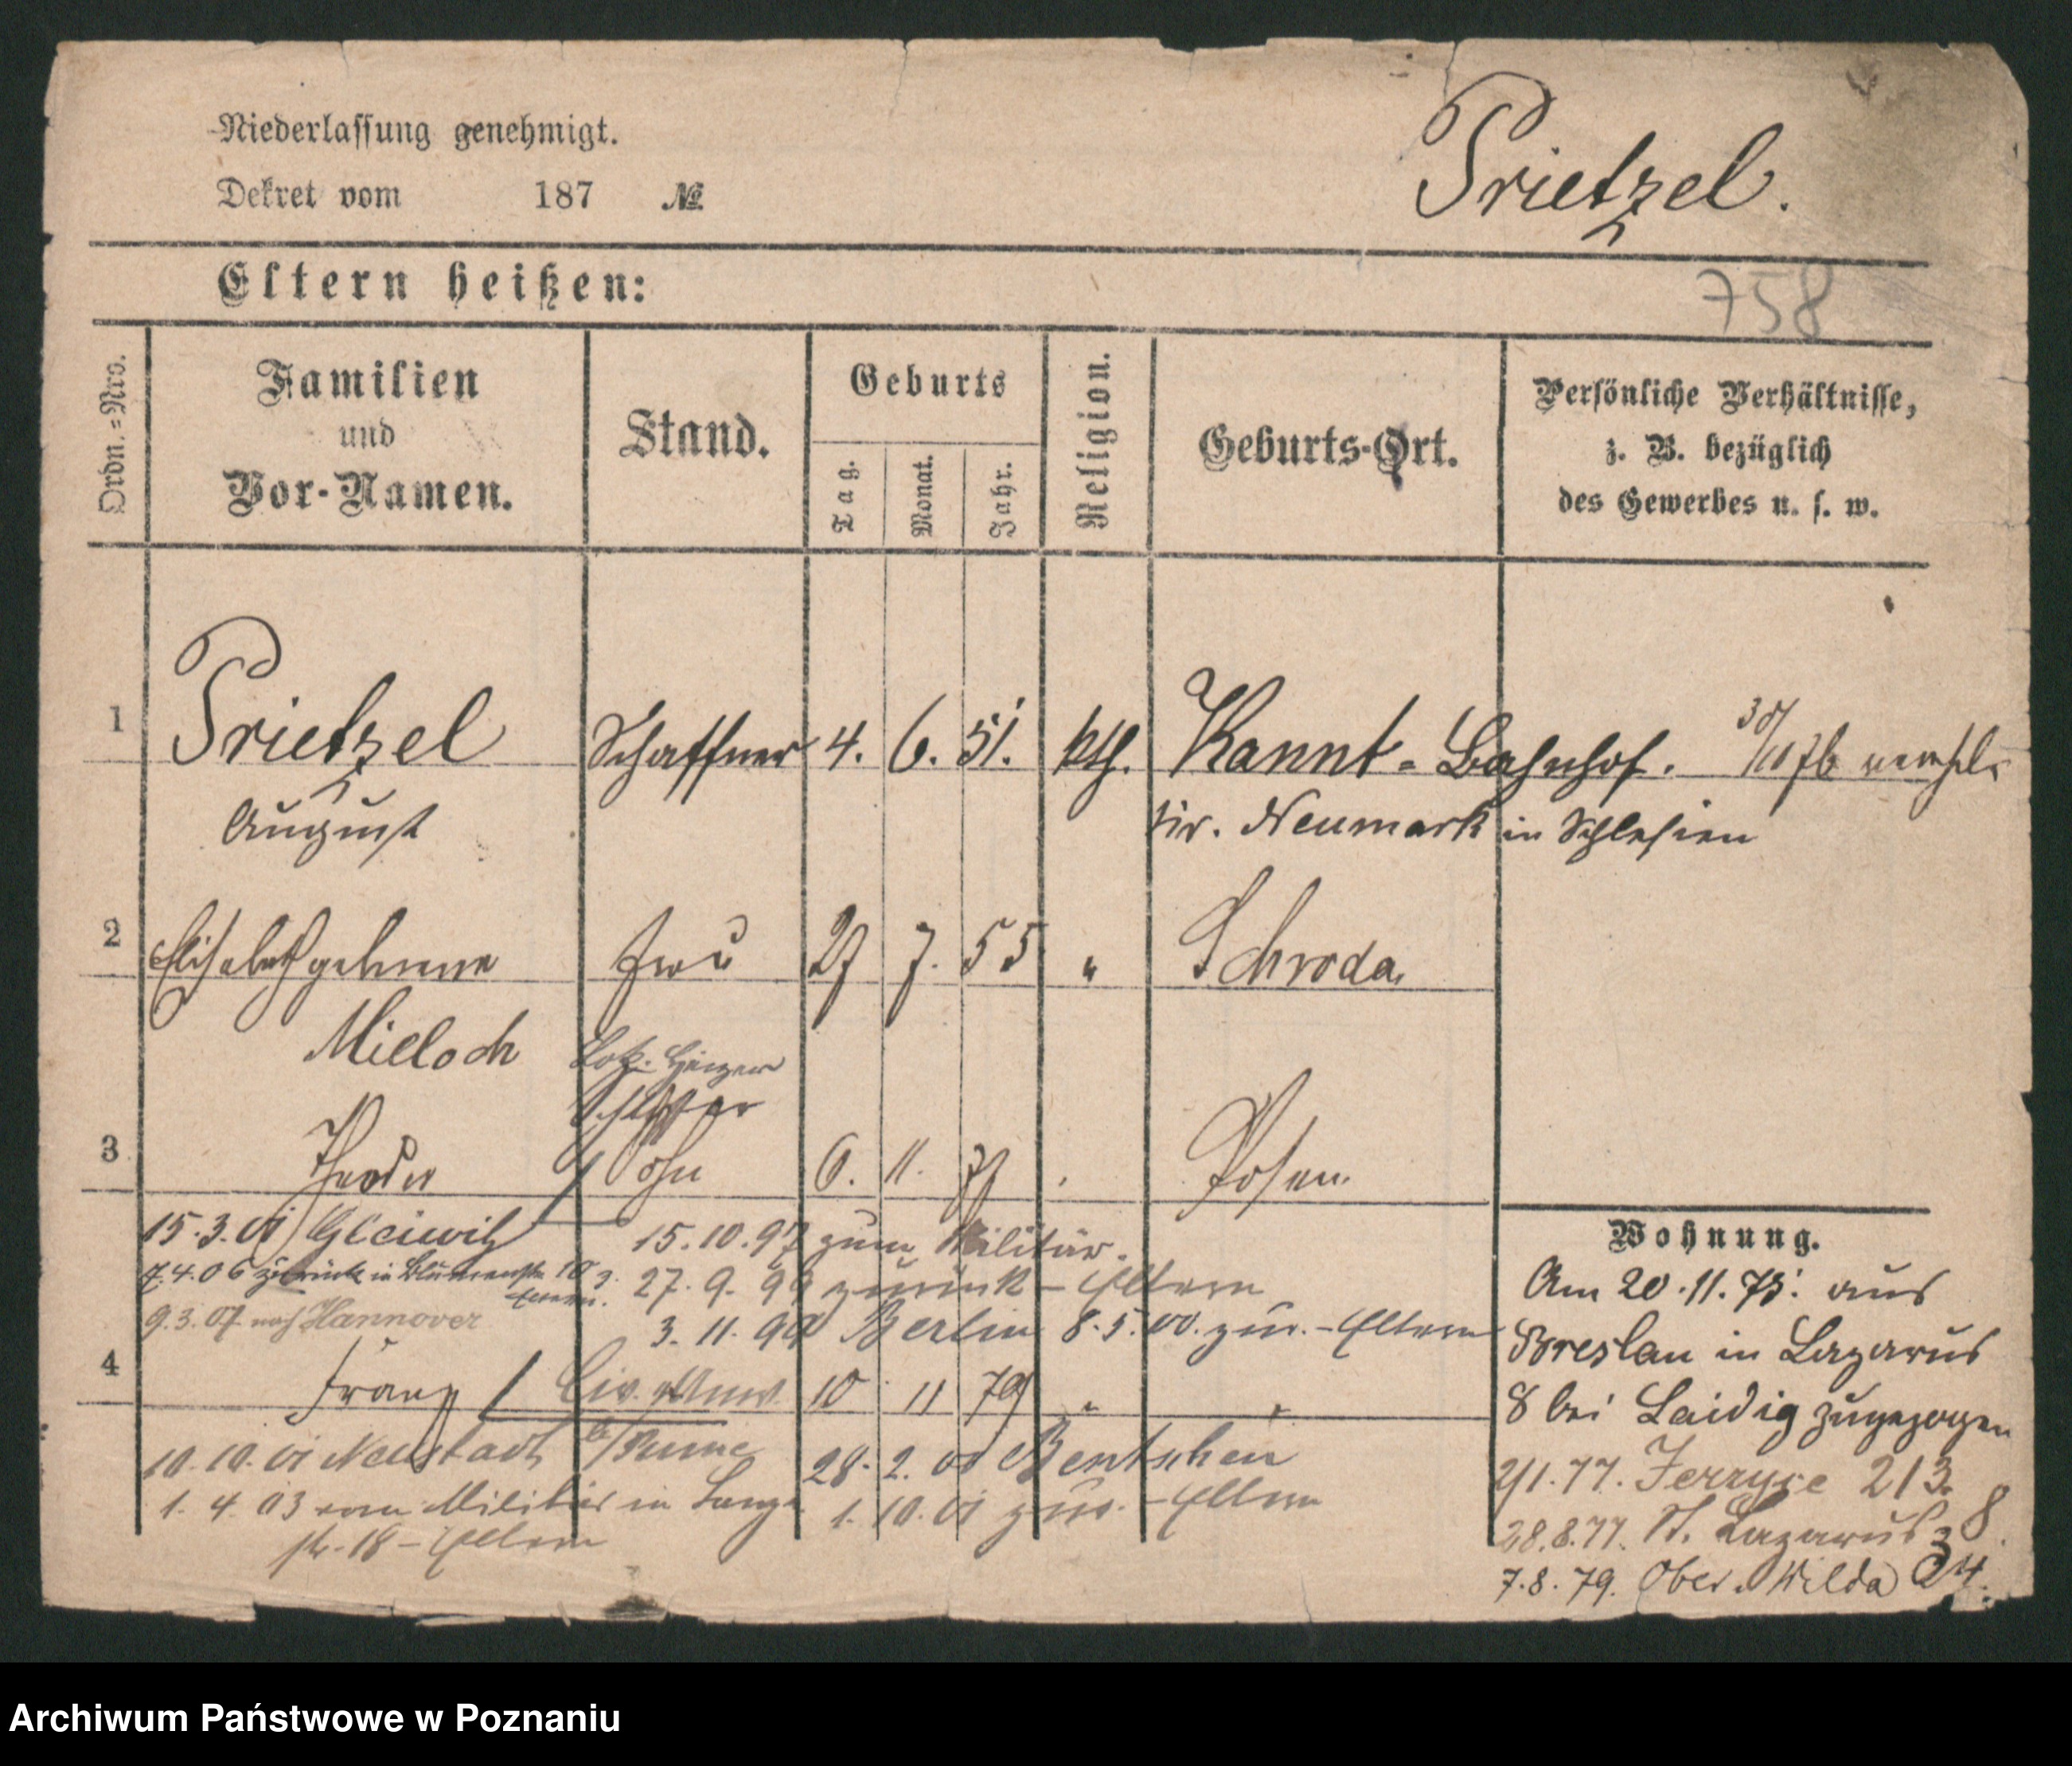 Niederlassung genehmigt.
Dekret vom 187 №
Prietzel.
Eltern heißen:
758
Ordn.=Nro.
Familien
und
Vor-Namen.
Stand.
Geburts
Tag.
Monat.
Jahr.
Religion.
Geburts-Ort.
Persönliche Verhältnisse,
z. B. bezüglich
des Gewerbes u. s. w.
1 Prietzel Schaffner 4. 6. 51. kth. Kannt-Bahnhof.
August Kr. Neumark in Schlesien
2 Elisabeth geborene Frau 27 7. 55 " Schroda
Mieloch
Schlosser
3 Theodor Sohn 6. 11. 77 Posen
15.3.01 Gleiwitz 15.10.97 zum Militär.
7.4.06 zurück in Blumenstr. 10 27.9.99 zurück - Eltern
9.3.07 nach Hannover 3.11.99 Berlin 8.5.00. zur. - Eltern
4 Franz 10 11 79 "
10.10.01 Neustadt b/Pinne 28.2.00 Bentschen
1.4.03 vom Militär in 1.10.01 zur. - Eltern
str. 18 - Eltern
Wohnung.
Am 20.11.75. aus
Breslau in Lazarus
8 bei Laidig zugezogen
2/1.77. Jerzyce 213.
28.8.77. St. Lazarus 8.
7.8.79. Ober-Wilda 34.
Archiwum Państwowe w Poznaniu